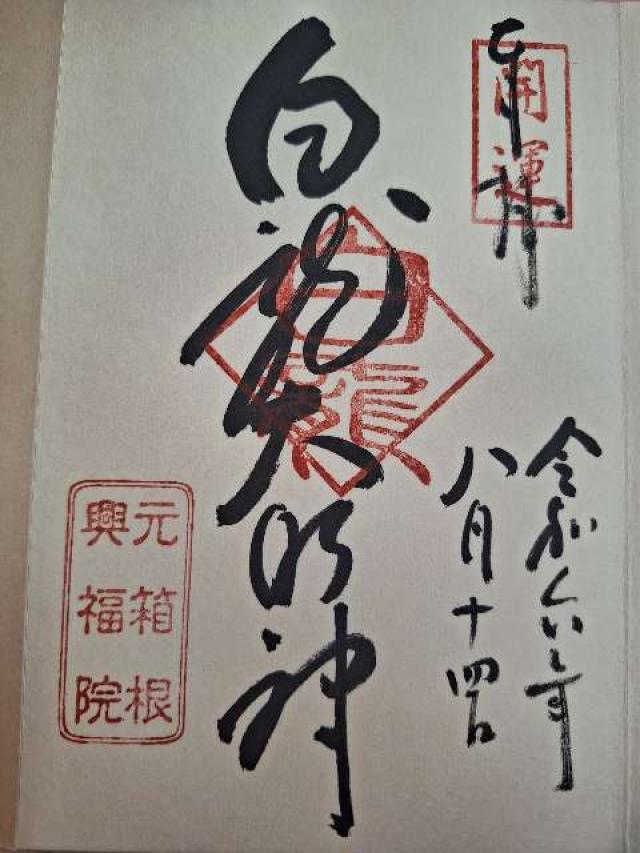 奉拝
開運
令和六年
八月十四日
白龍大明神
白龍
元箱根
興福院